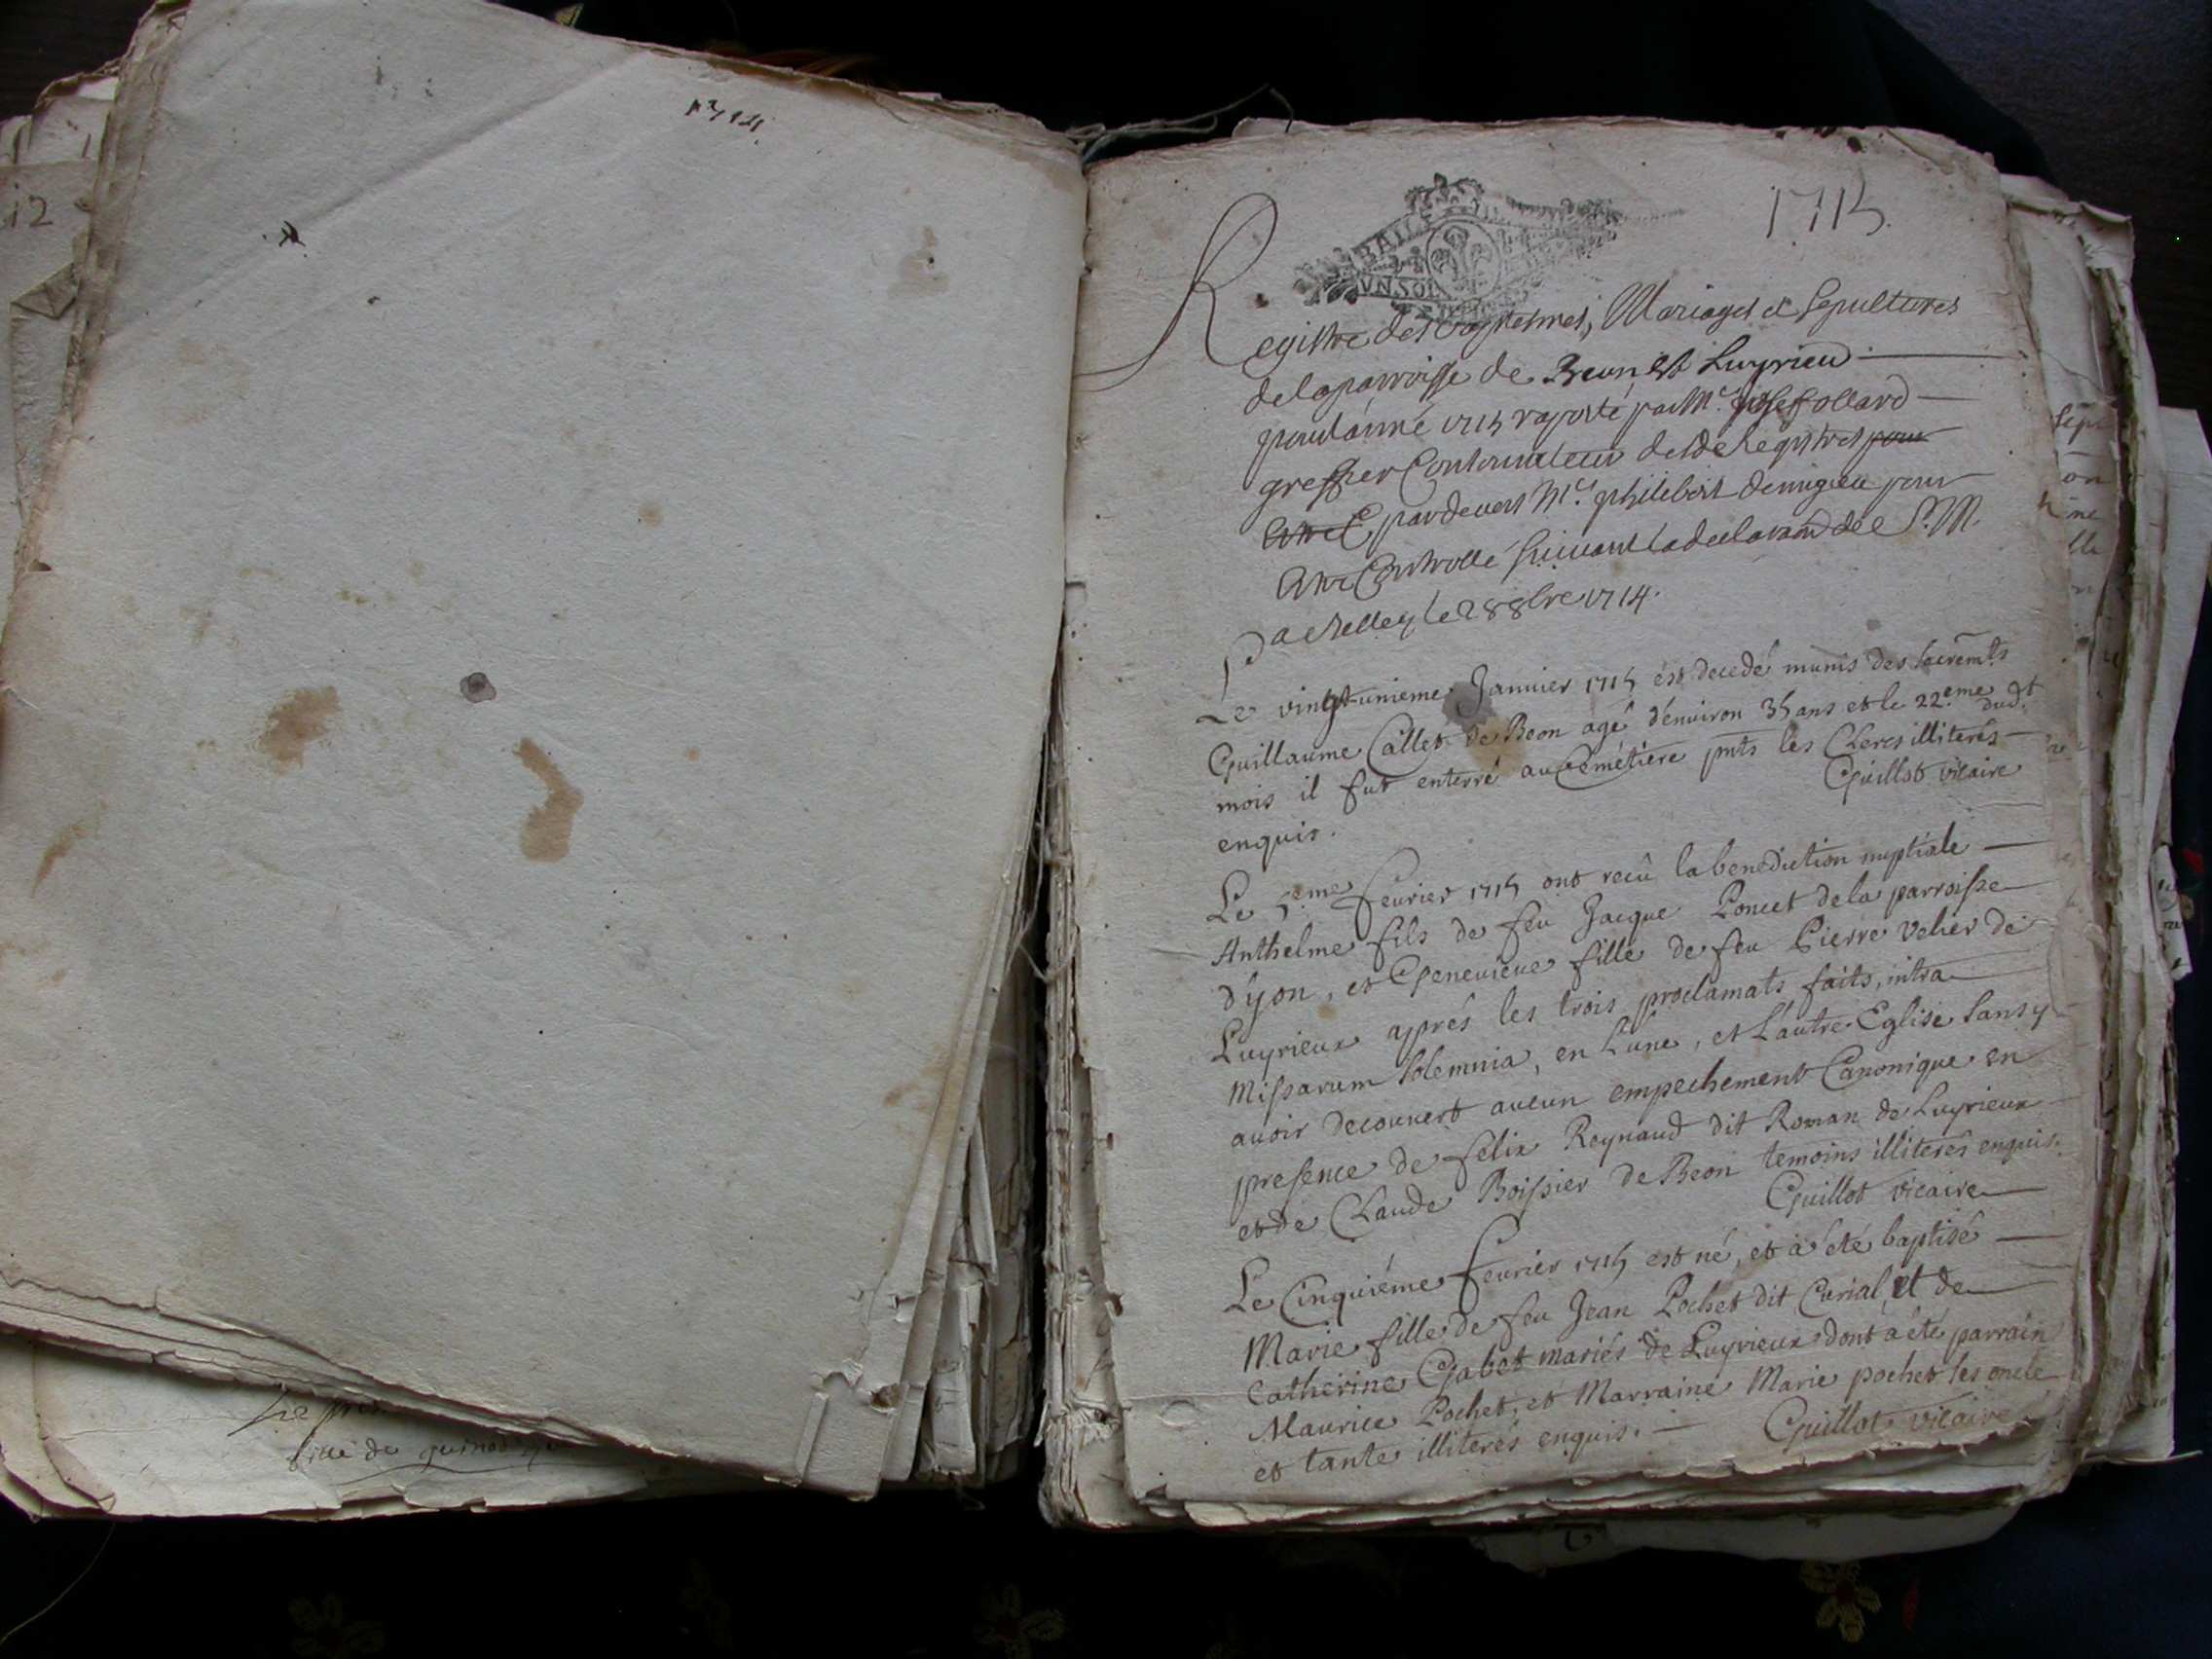 1714
12
1715.
BAILL
VN SOL
Registre des Baptesmes, Mariages et Sepultures
de la parroisse de Beon et Luyrieu
pour l'année 1715 raporté par Mr. Joseph ollard
greffier Conservateur desd. Registres pour
Estre C pardevers Mr. philibert demigieu pour
Estre Controllé suivant la declaraõn de S. M.
a Belley le 28 8bre 1714.
Le vingt-unieme Janvier 1715 ést decedé munis des sacremts
Guillaume Callet de Beon agé d'environ 35 ans et le 22.eme dud.t
mois il fut enterré au Cémétiere pnts les Clercs illiterés
enquis. Guillot vicaire
Le 5.eme Feurier 1715 ont recû la benediction nuptiale
Anthelme fils de feu Jacque Poncet de la parroisse
d'yon, et Geneuieue fille de feu Pierre Velier de
Luyrieux aprés les trois proclamats faits, intra
Missarum solemnia, en l'une, et l'autre Eglise sans y
auoir decouuert aucun empechement Canonique en
presence de felix Reynaud dit Roman de Luyrieux
et de Claude Boissier de Beon temoins illiterés enquis.
Guillot vicaire
Le Cinquiéme feurier 1715 est né, et à été baptisé
Marie fille de feu Jean Pochet dit Curial, et de
Catherine Gabet mariés de Luyrieux dont à été parrain
Maurice Pochet, et Marraine Marie pochet les oncle
et tante illiterés enquis. Guillot vicaire
fille de